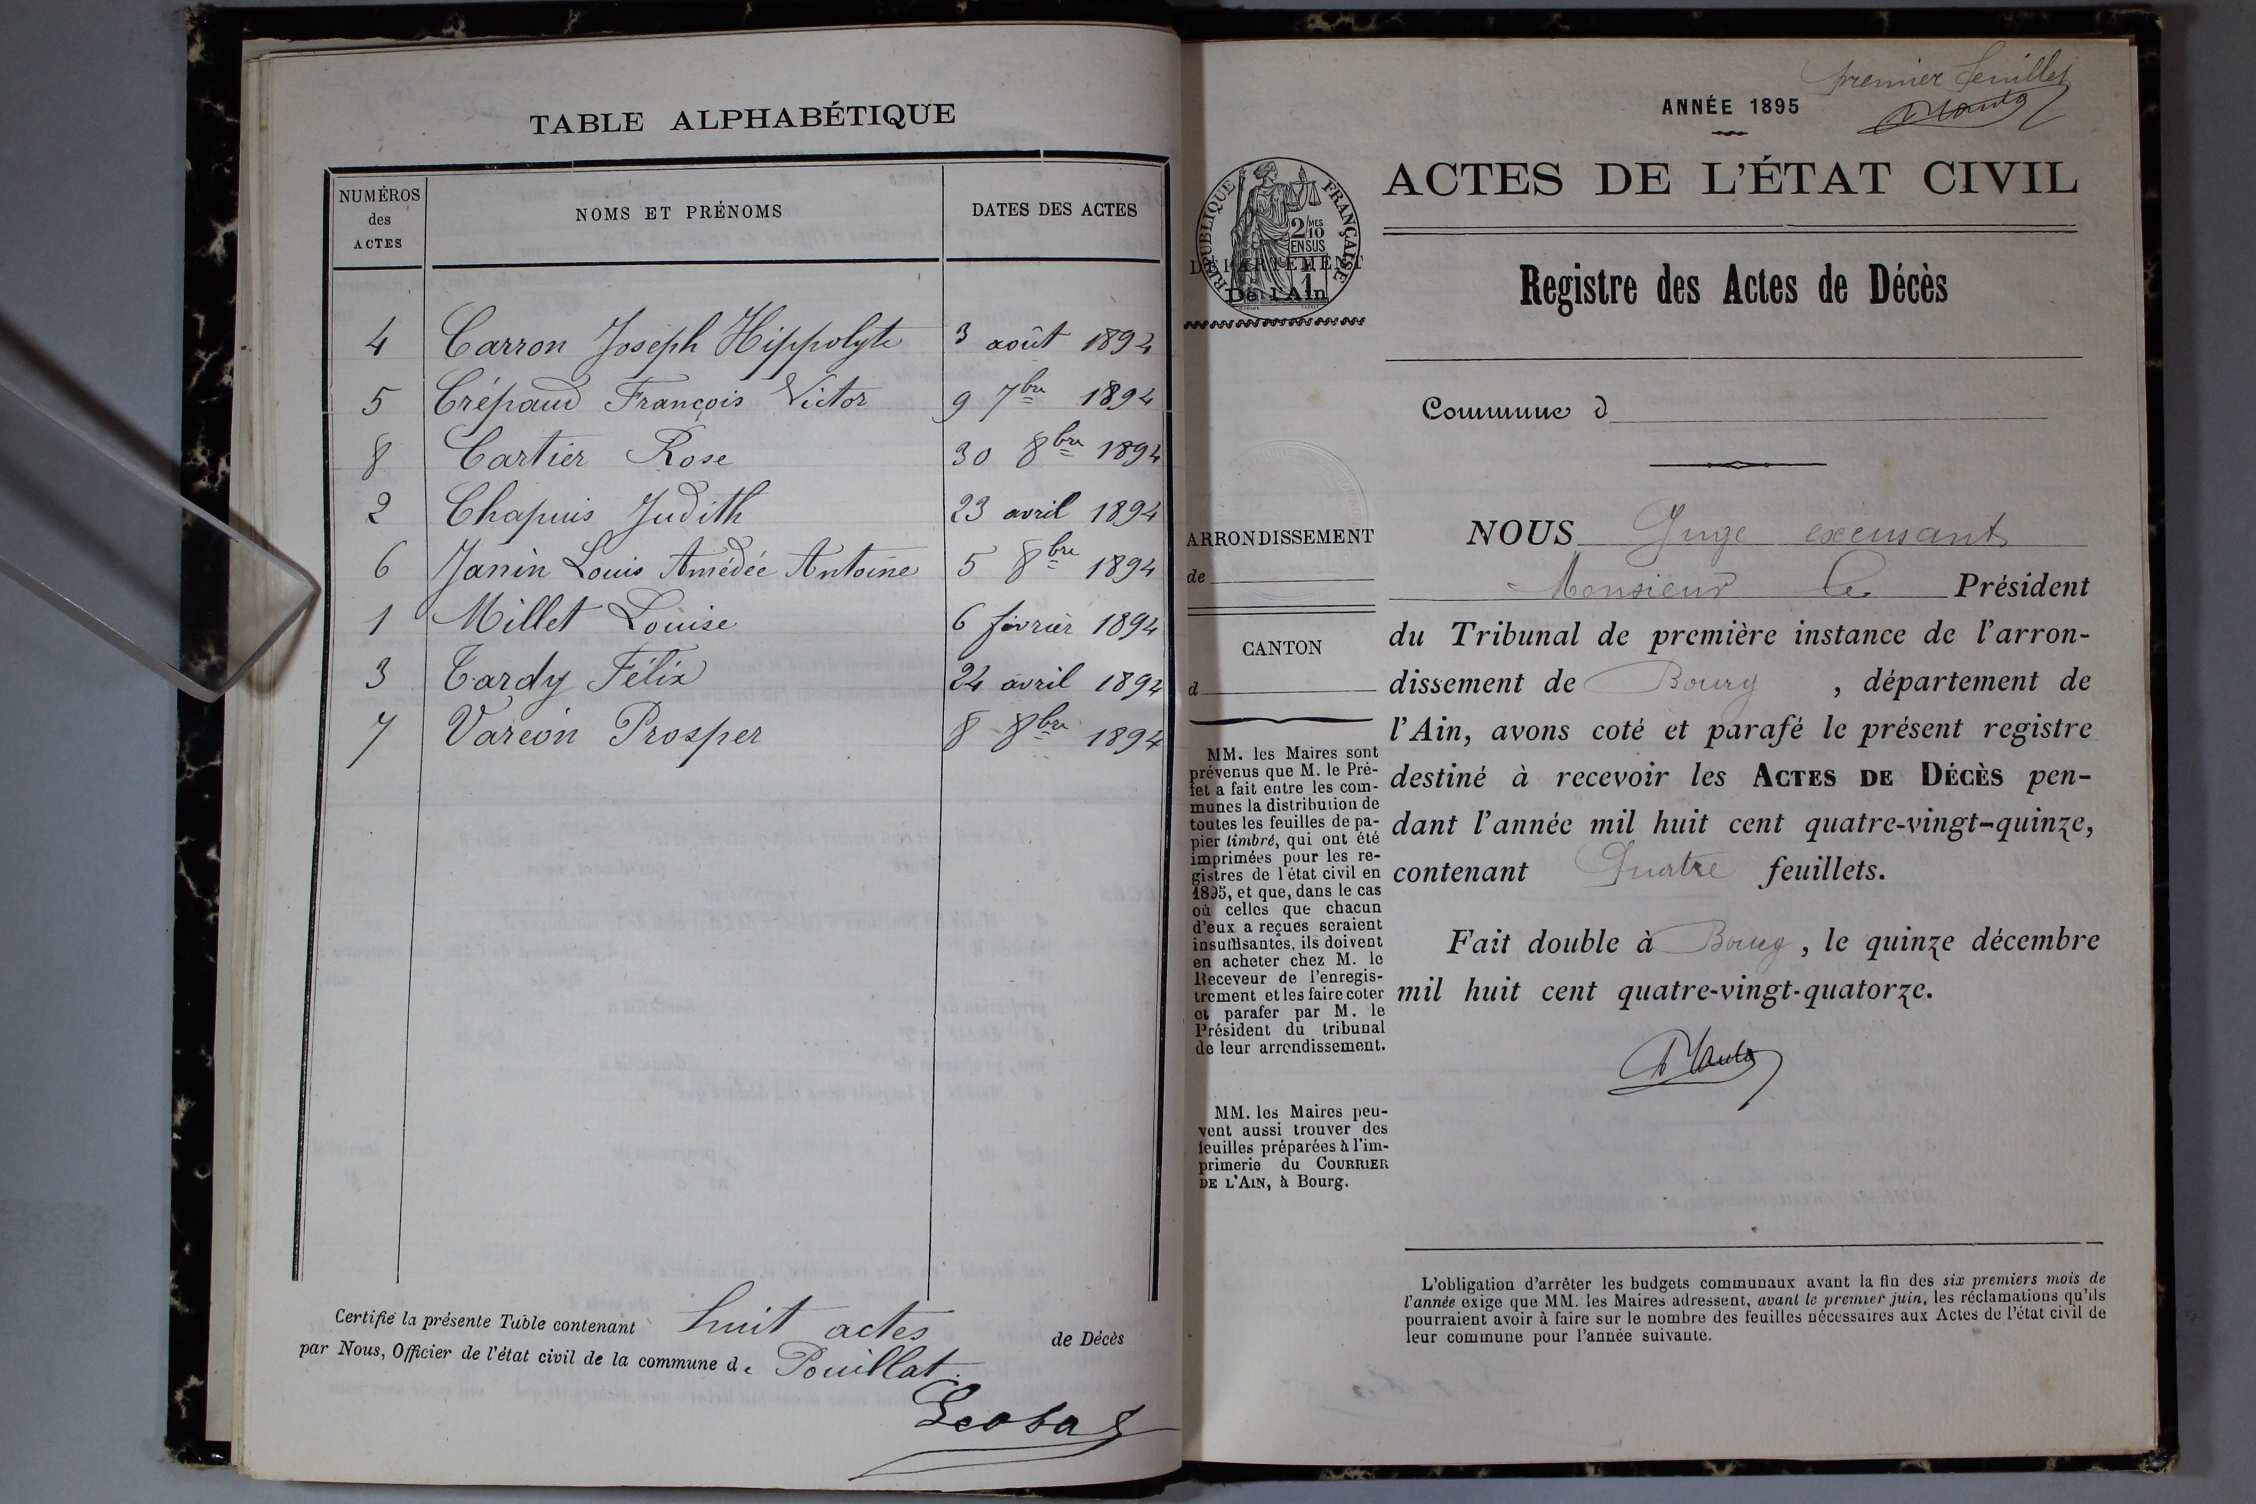 TABLE ALPHABÉTIQUE
NUMÉROS
des
ACTES
NOMS ET PRÉNOMS
DATES DES ACTES
4 Carron Joseph Hippolyte 3 août 1894
5 Crépaud François Victor 9 7bre 1894
8 Cartier Rose 30 8bre 1894
2 Chapuis Judith 23 avril 1894
6 Janin Louis Amédée Antoine 5 8bre 1894
1 Millet Louise 6 février 1894
3 Tardy Félix 24 avril 1894
7 Varéon Prosper 8 8bre 1894
Certifié la présente Table contenant huit actes de Décès
par Nous, Officier de l'état civil de la commune de Pouillat.
premier feuillet
ANNÉE 1895
ACTES DE L'ÉTAT CIVIL
RÉPUBLIQUE FRANÇAISE
2/10MES
EN SUS
DÉPARTEMENT
De l'Ain
Registre des Actes de Décès
Commune d
ARRONDISSEMENT
de
CANTON
d
MM. les Maires sont
prévenus que M. le Pré-
fet a fait entre les com-
munes la distribution de
toutes les feuilles de pa-
pier timbré, qui ont été
imprimées pour les re-
gistres de l'état civil en
1895, et que, dans le cas
où celles que chacun
d'eux a reçues seraient
insuffisantes, ils doivent
en acheter chez M. le
Receveur de l'enregis-
trement et les faire coter
et parafer par M. le
Président du tribunal
de leur arrondissement.
MM. les Maires peu-
vent aussi trouver des
feuilles préparées à l'im-
primerie du COURRIER
DE L'AIN, à Bourg.
NOUS Juge excusant
Monsieur le Président
du Tribunal de première instance de l'arron-
dissement de Bourg, département de
l'Ain, avons coté et parafé le présent registre
destiné à recevoir les ACTES DE DÉCÈS pen-
dant l'année mil huit cent quatre-vingt-quinze,
contenant Quatre feuillets.
Fait double à Bourg, le quinze décembre
mil huit cent quatre-vingt-quatorze.
L'obligation d'arrêter les budgets communaux avant la fin des six premiers mois de
l'année exige que MM. les Maires adressent, avant le premier juin, les réclamations qu'ils
pourraient avoir à faire sur le nombre des feuilles nécessaires aux Actes de l'état civil de
leur commune pour l'année suivante.